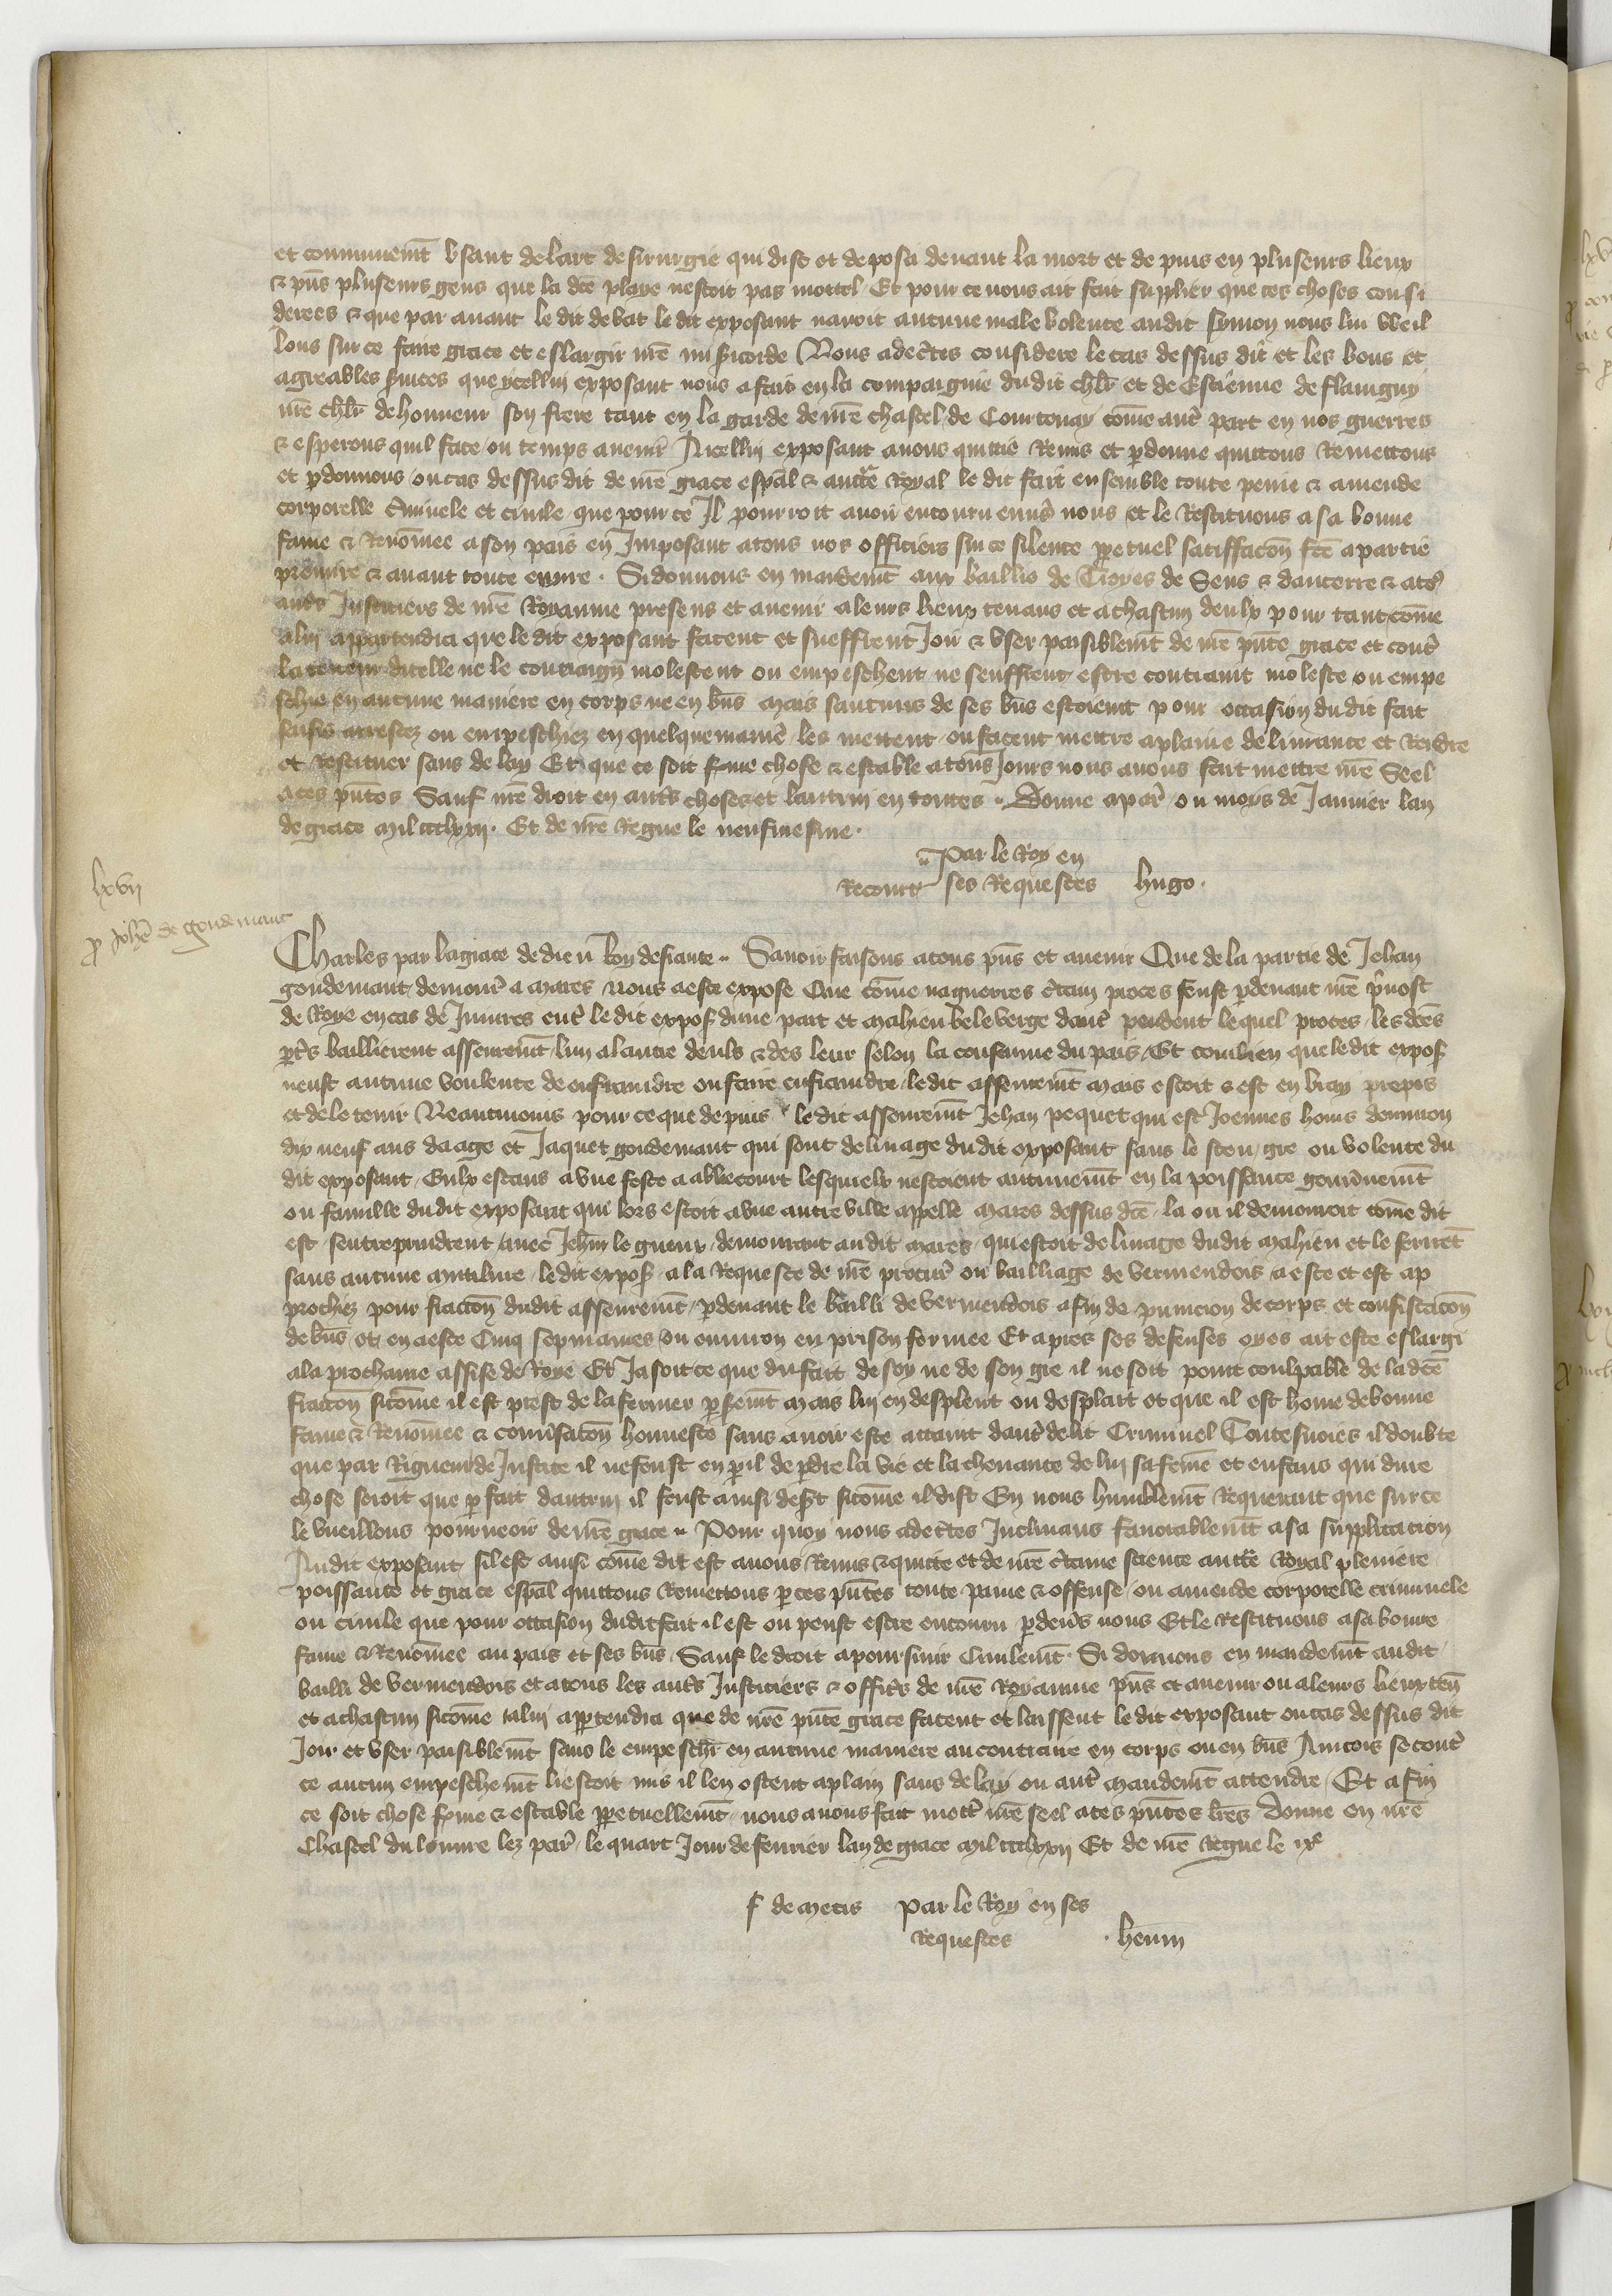 et communemt usant de lart de sirurgie qui dist et deposa devant la mort et depuis en pluseurs lieux
& pns pluseurs gens que la dce playe nestoit pas mortel Et pour ce nous ait fait supplier que ces choses consi
derees & que par avant le dit debat le dit exposant navoit aucune male volente audit symon nous lui veil
lons sur ce faire grace et eslargir nre misicorde Nous adectes considere le cas dessus dit et les bons et
agreables suices que ycellui exposant nous a fais en la compaignie dudit chlr et de Estienne de flavigny
nre chlr de honneur son frere tant en la garde de nre chastel de Courtenay come autr part en nos guerres
& esperons quil face ou temps avenir A icellui exposant avons quittie Remis et pdonne quittons Remettons
et pdonnons ou cas dessus dit de nre grace espal & auctte Royal le dit fait ensemble toute peine & amende
corporelle cminele et civile que pour ce Il pourroit avoir encouru envs nous et le Restituons a sa bonne
fame & Renomee a son pais en Imposant a tous nos officiers sur ce silence ppetuel satiffacon fce a partie
premiere & avant toute euvre. Si donnons en mandemt aux baillis de Troyes de Sens & daucerre & a to9
autrs Justiciers de nre Royaume presens et avenir a leurs lieux tenans et a chascun deulx pour tant come
a lui appartendra que le dit exposant facent et sueffrent Joir & user paisiblemt de nre pnte grace et contr
la teneur dicelle ne le contraign molestent ou empeschent ne seuffrent estre contraint moleste ou empe
schie en aucune maniere en corps ne en bns Mais saucuns de ses bns estoient pour occasion dudit fait
saisis arrestez ou empeschiez en quelque manie les mettent ou facent mettre a plaine delivrance et Rendre
et Restituer sans delay Et que ce soit fme chose & estable a tous Jours nous avons fait mettre nre Seel
a ces pntes Sauf nre droit en autrs choses et lautrui en toutes. Donne a par ou moys de Janvier lan
de grace Mil ccclxxii. Et de nre Regne le neufiesme.
Par le Roy en
Recourt ses Requestes hugo.
lxvii
p Johe de goudemant
Charles par la grace de dieu Roy de france. Savoir faisons a tous pns et avenir Que de la partie de Jehan
goudemant demour a Mares nous a este expose Que come nagueires ctain proces feust pdevant nre pvost
de Roye en cas de Injures entr le dit expos dune part et Mahieu beleverge dautr pendent lequel proces les dces
pties baillierent asseuremt lun a lautre deuls & des leur selon la coustume du pais Et combien que le dit expos
neust aucune voulente de enfraindre ou faire enfraindre le dit asseuremt Mais estoit & est en vray propos
et de le tenir Neantmoins pour ce que depuis le dit asseuremt Jehan pequet qui est Joennes homs denviron
dix neuf ans daage et Jaquet goudemant qui sont de linage dudit exposant sans le sceu gre ou volente du
dit exposant Eulx estans a une feste a ablecourt lesquielx nestoient aucunemt en la poissance gouvnemt
ou famille dudit exposant qui lors estoit a une autre ville appelle Mares dessus dce la ou il demouroit come dit
est sentreprindrent avec Jehn le gueur demourant audit Mares qui estoit de linage dudit Mahieu et le ferirent
sans aucune mutilure le dit expos a la Requeste de nre procur ou bailliage de vermendois a este et est ap
prochiez pour fraccon dudit asseuremt pdevant le bailli de vermendois a fin de punicion de corps et confiscacon
de bns et en a este Cinq sepmaines ou environ en prison fermee Et apres ses defenses oyes ait este eslargi
a la prochaine assise de Roye Et Ja soit ce que du fait de soy ne de son gre il ne soit point coulpable de la dce
fraccon sicome il est prest de lafermer p sermt Mais lui en desplent ou desplait et que il est home de bonne
fame & Renomee & convsacon honneste sans avoir este attaint dautr delit Criminel Toutesvoies il doubte
que par Rigueur de Justice il ne feust en pil de pdre la vie et la chevance de lui sa feme et enfans qui dure
chose seroit que p fait dautrui il feust ainsi dest sicome il dist En nous humblemt Requerant que sur ce
le vueillons pourveoir de nre grace. Pour quoy nous adectes Inclinans favorablemt a sa supplicacion
Audit exposant sil est ainsi come dit est avons Remis & quitte et de nre ctaine science auctte Royal pleniere
poissance et grace espal quittons Remettons p ces pntes toute paine & offense ou amende corporelle criminele
ou civile que pour occasion dudit fait il est ou peust estre encouru pdevs nous Et le Restituons a sa bonne
fame & Renomee au pais et ses bns Sauf le droit a poursuir Civilemt. Si donnons en mandemt audit
bailli de vermendois et a tous les autrs Justiciers & officrs de nre Royaume pns et avenir ou a leurs lieuxten
et a chascun sicome a lui appartendra que de nre pnte grace facent et laissent le dit exposant ou cas dessus dit
Joir et user paisiblemt sans le empeschr en aucune maniere au contraire en corps ou en bns Aincois se contr
ce aucun empeschemt li estoit mis il len ostent a plain sans delay ou autr mandemt attendre Et a fin
ce soit chose fme & estable ppetuellemt nous avons fait mettr nre seel a ces pntes lres Donne en nre
Chastel du louvre lez par le quart Jour de fevrier lan de grace Mil ccclxxii Et de nre Regne le ixe
f de Metis Par le Roy en ses
Requestes . henin